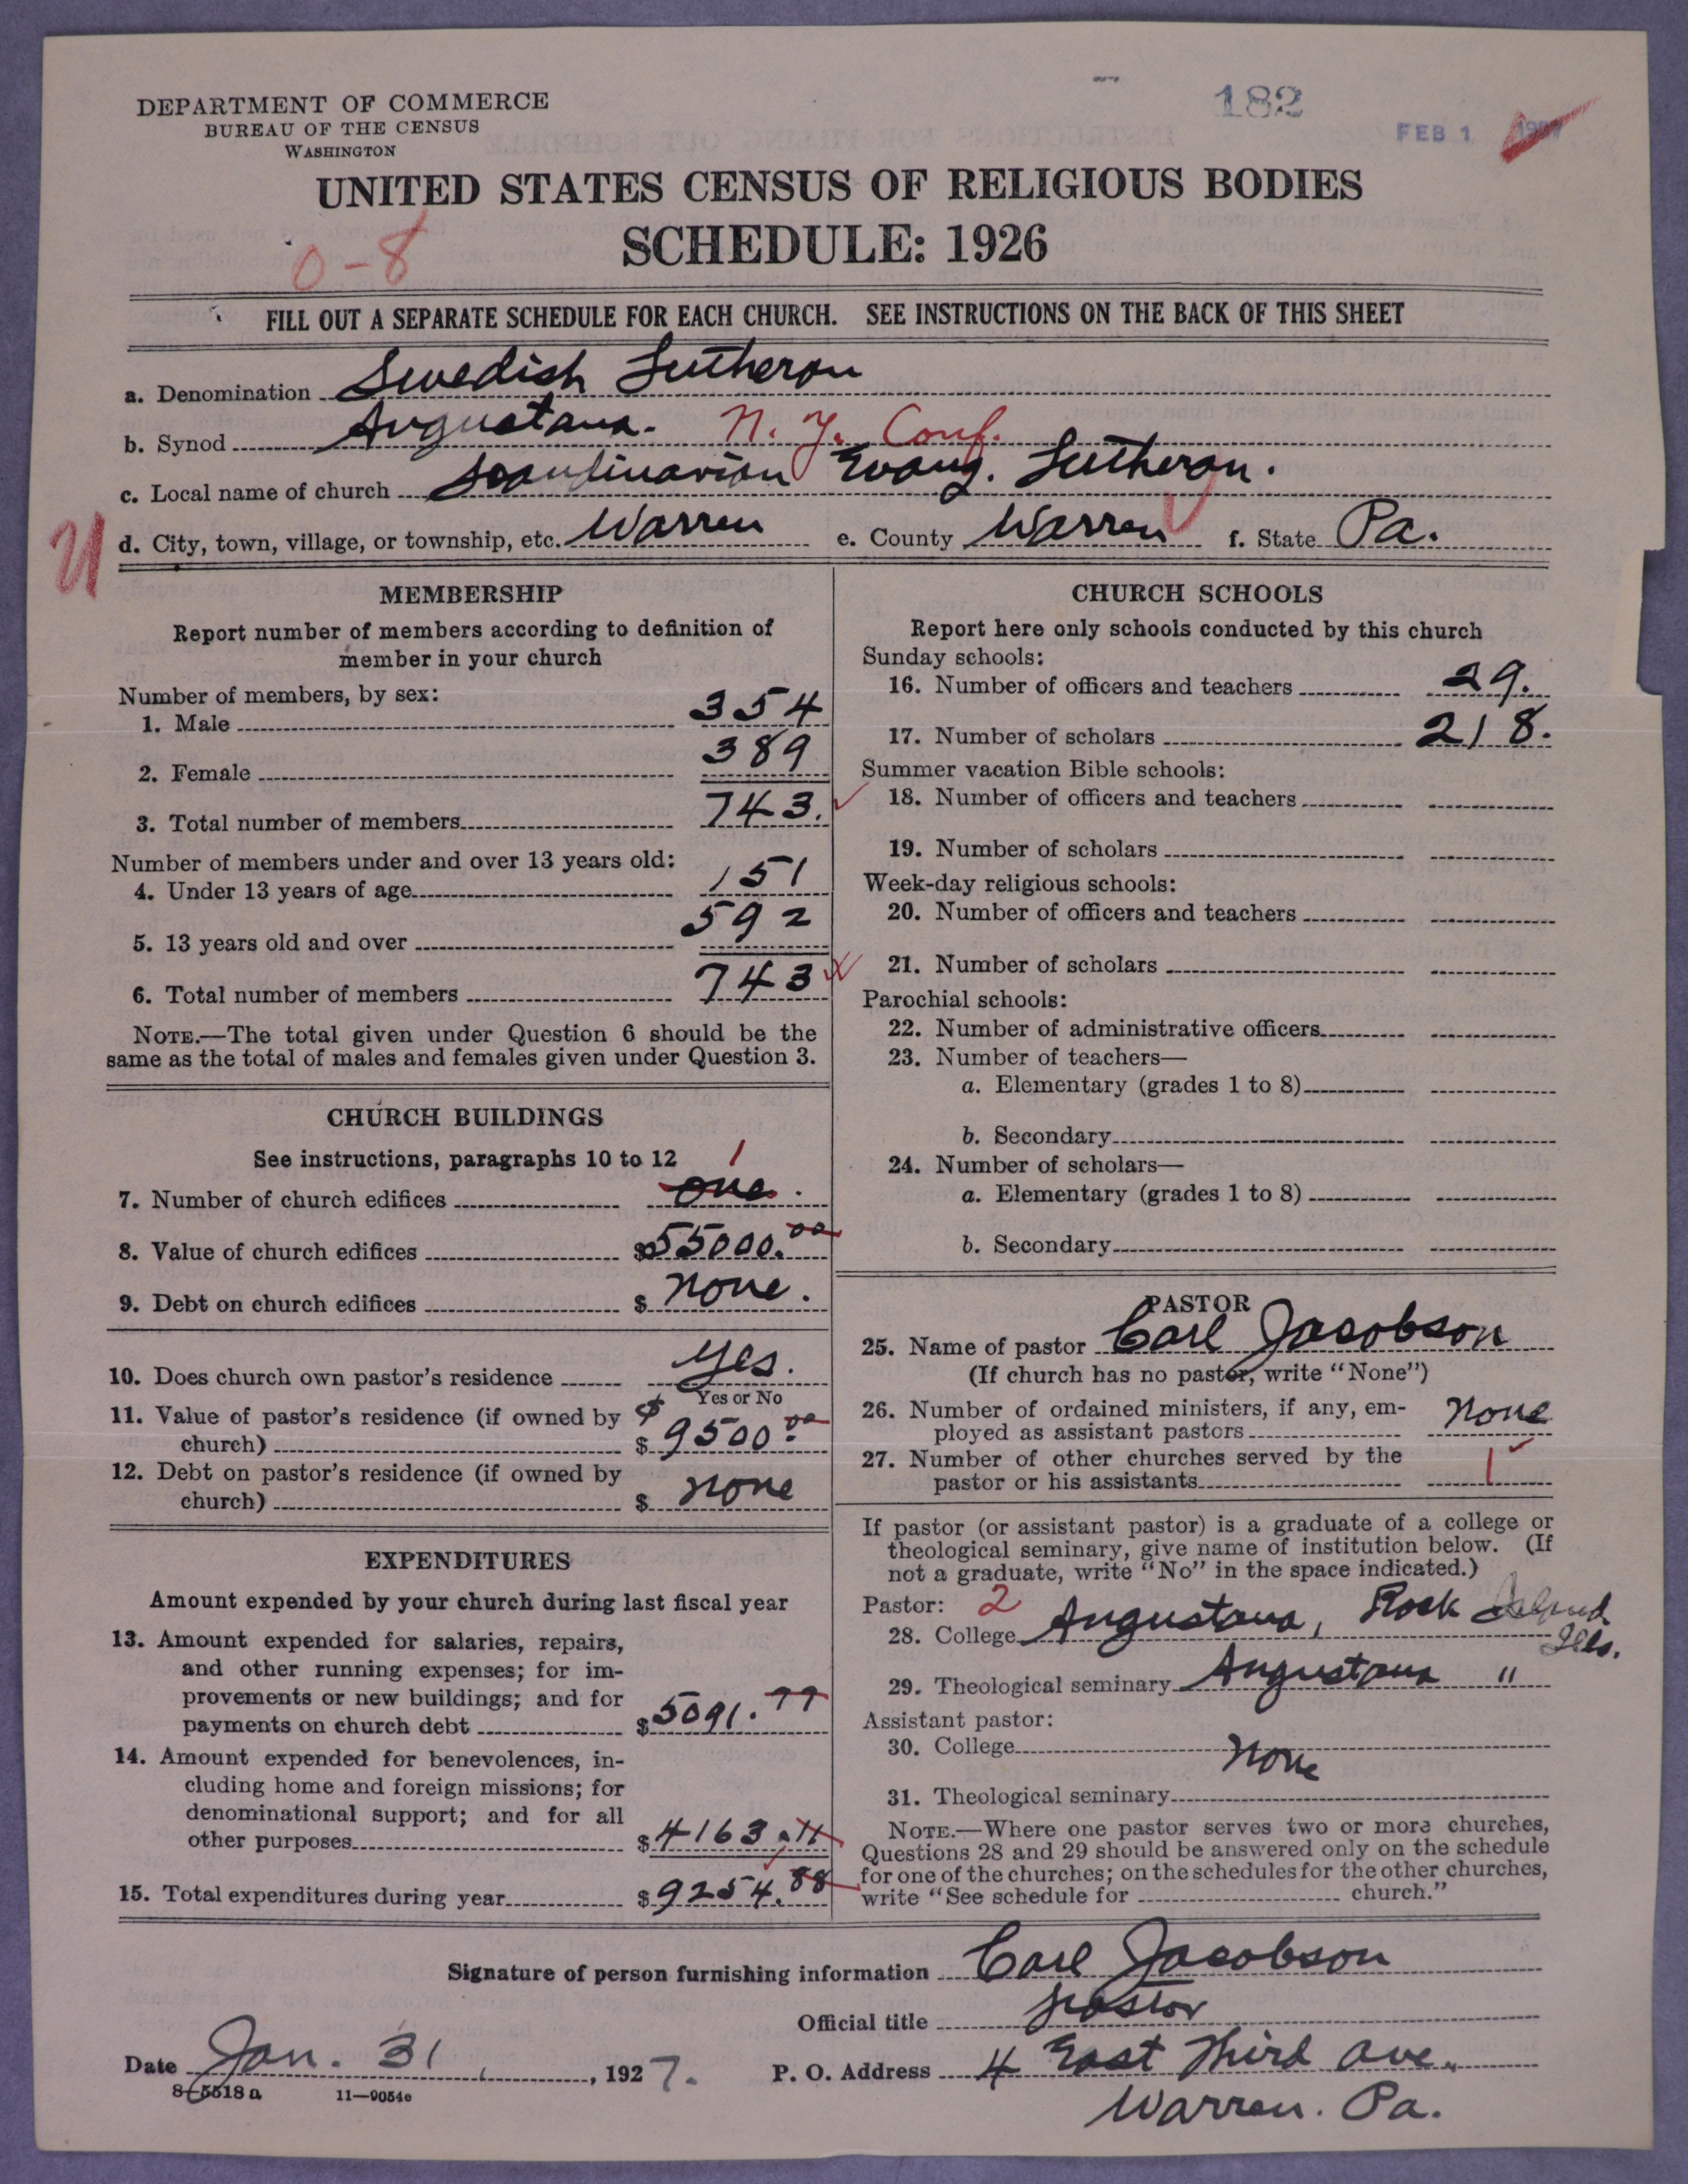 182
FEB 1 1927
DEPARTMENT OF COMMERCE
BUREAU OF THE CENSUS
WASHINGTON
UNITED STATES CENSUS OF RELIGIOUS BODIES
SCHEDULE: 1926
0-8
FILL OUT A SEPARATE SCHEDULE FOR EACH CHURCH. SEE INSTRUCTIONS ON THE BACK OF THIS SHEET
a. Denomination Swedish Lutheran
b. Synod Augustana. N. Y. Conf.
c. Local name of church Scandinavian Evang. Lutheran.
U
d. City, town, village, or township, etc. Warren e. County Warren f. State Pa.
MEMBERSHIP
Report number of members according to definition of
member in your church
Number of members, by sex:
1. Male 354
2. Female 389
3. Total number of members 743.
Number of members under and over 13 years old:
4. Under 13 years of age 151
5. 13 years old and over 592
6. Total number of members 743
NOTE.—The total given under Question 6 should be the
same as the total of males and females given under Question 3.
CHURCH BUILDINGS
See instructions, paragraphs 10 to 12
1
7. Number of church edifices one.
8. Value of church edifices $55000.00
9. Debt on church edifices $ none.
10. Does church own pastor's residence yes.
Yes or No
11. Value of pastor's residence (if owned by
church) $ 9500.00
12. Debt on pastor's residence (if owned by
church) $ none
EXPENDITURES
Amount expended by your church during last fiscal year
13. Amount expended for salaries, repairs,
and other running expenses; for im-
provements or new buildings; and for
payments on church debt $5091.77
14. Amount expended for benevolences, in-
cluding home and foreign missions; for
denominational support; and for all
other purposes $4163.11
15. Total expenditures during year $9254.88
CHURCH SCHOOLS
Report here only schools conducted by this church
Sunday schools:
16. Number of officers and teachers 29.
17. Number of scholars 218.
Summer vacation Bible schools:
18. Number of officers and teachers
19. Number of scholars
Week-day religious schools:
20. Number of officers and teachers
21. Number of scholars
Parochial schools:
22. Number of administrative officers
23. Number of teachers—
a. Elementary (grades 1 to 8)
b. Secondary
24. Number of scholars—
a. Elementary (grades 1 to 8)
b. Secondary
PASTOR
25. Name of pastor Carl Jacobson
(If church has no pastor, write "None")
26. Number of ordained ministers, if any, em-
ployed as assistant pastors none
27. Number of other churches served by the
pastor or his assistants 1
If pastor (or assistant pastor) is a graduate of a college or
theological seminary, give name of institution below. (If
not a graduate, write "No" in the space indicated.)
Pastor: 2
28. College Augustana, Rock Island
Ills.
29. Theological seminary Augustana "
Assistant pastor:
30. College none
31. Theological seminary
NOTE.—Where one pastor serves two or more churches,
Questions 28 and 29 should be answered only on the schedule
for one of the churches; on the schedules for the other churches,
write "See schedule for church."
Signature of person furnishing information Carl Jacobson
Official title pastor
Date Jan. 31, 1927. P. O. Address 4 East Third Ave.
Warren. Pa.
8-5518 a 11—9054e